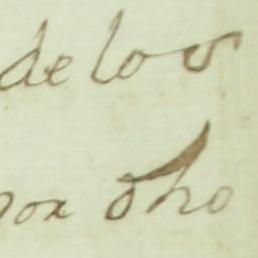 de los
por dho